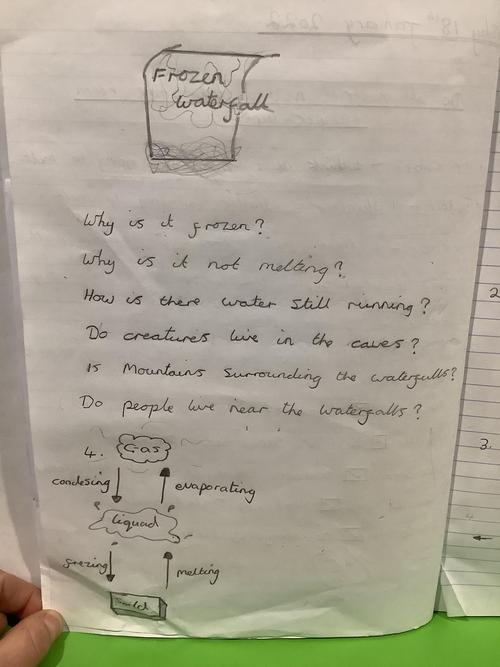 Frozen
waterfall
Why is it frozen?
Why is it not melting?
How is there water still running?
Do creatures live in the caves?
Is Mountains surrounding the waterfalls?
Do people live near the waterfalls?
4. Gas
condesing evaporating
liquad
frezing melting
2.
3.